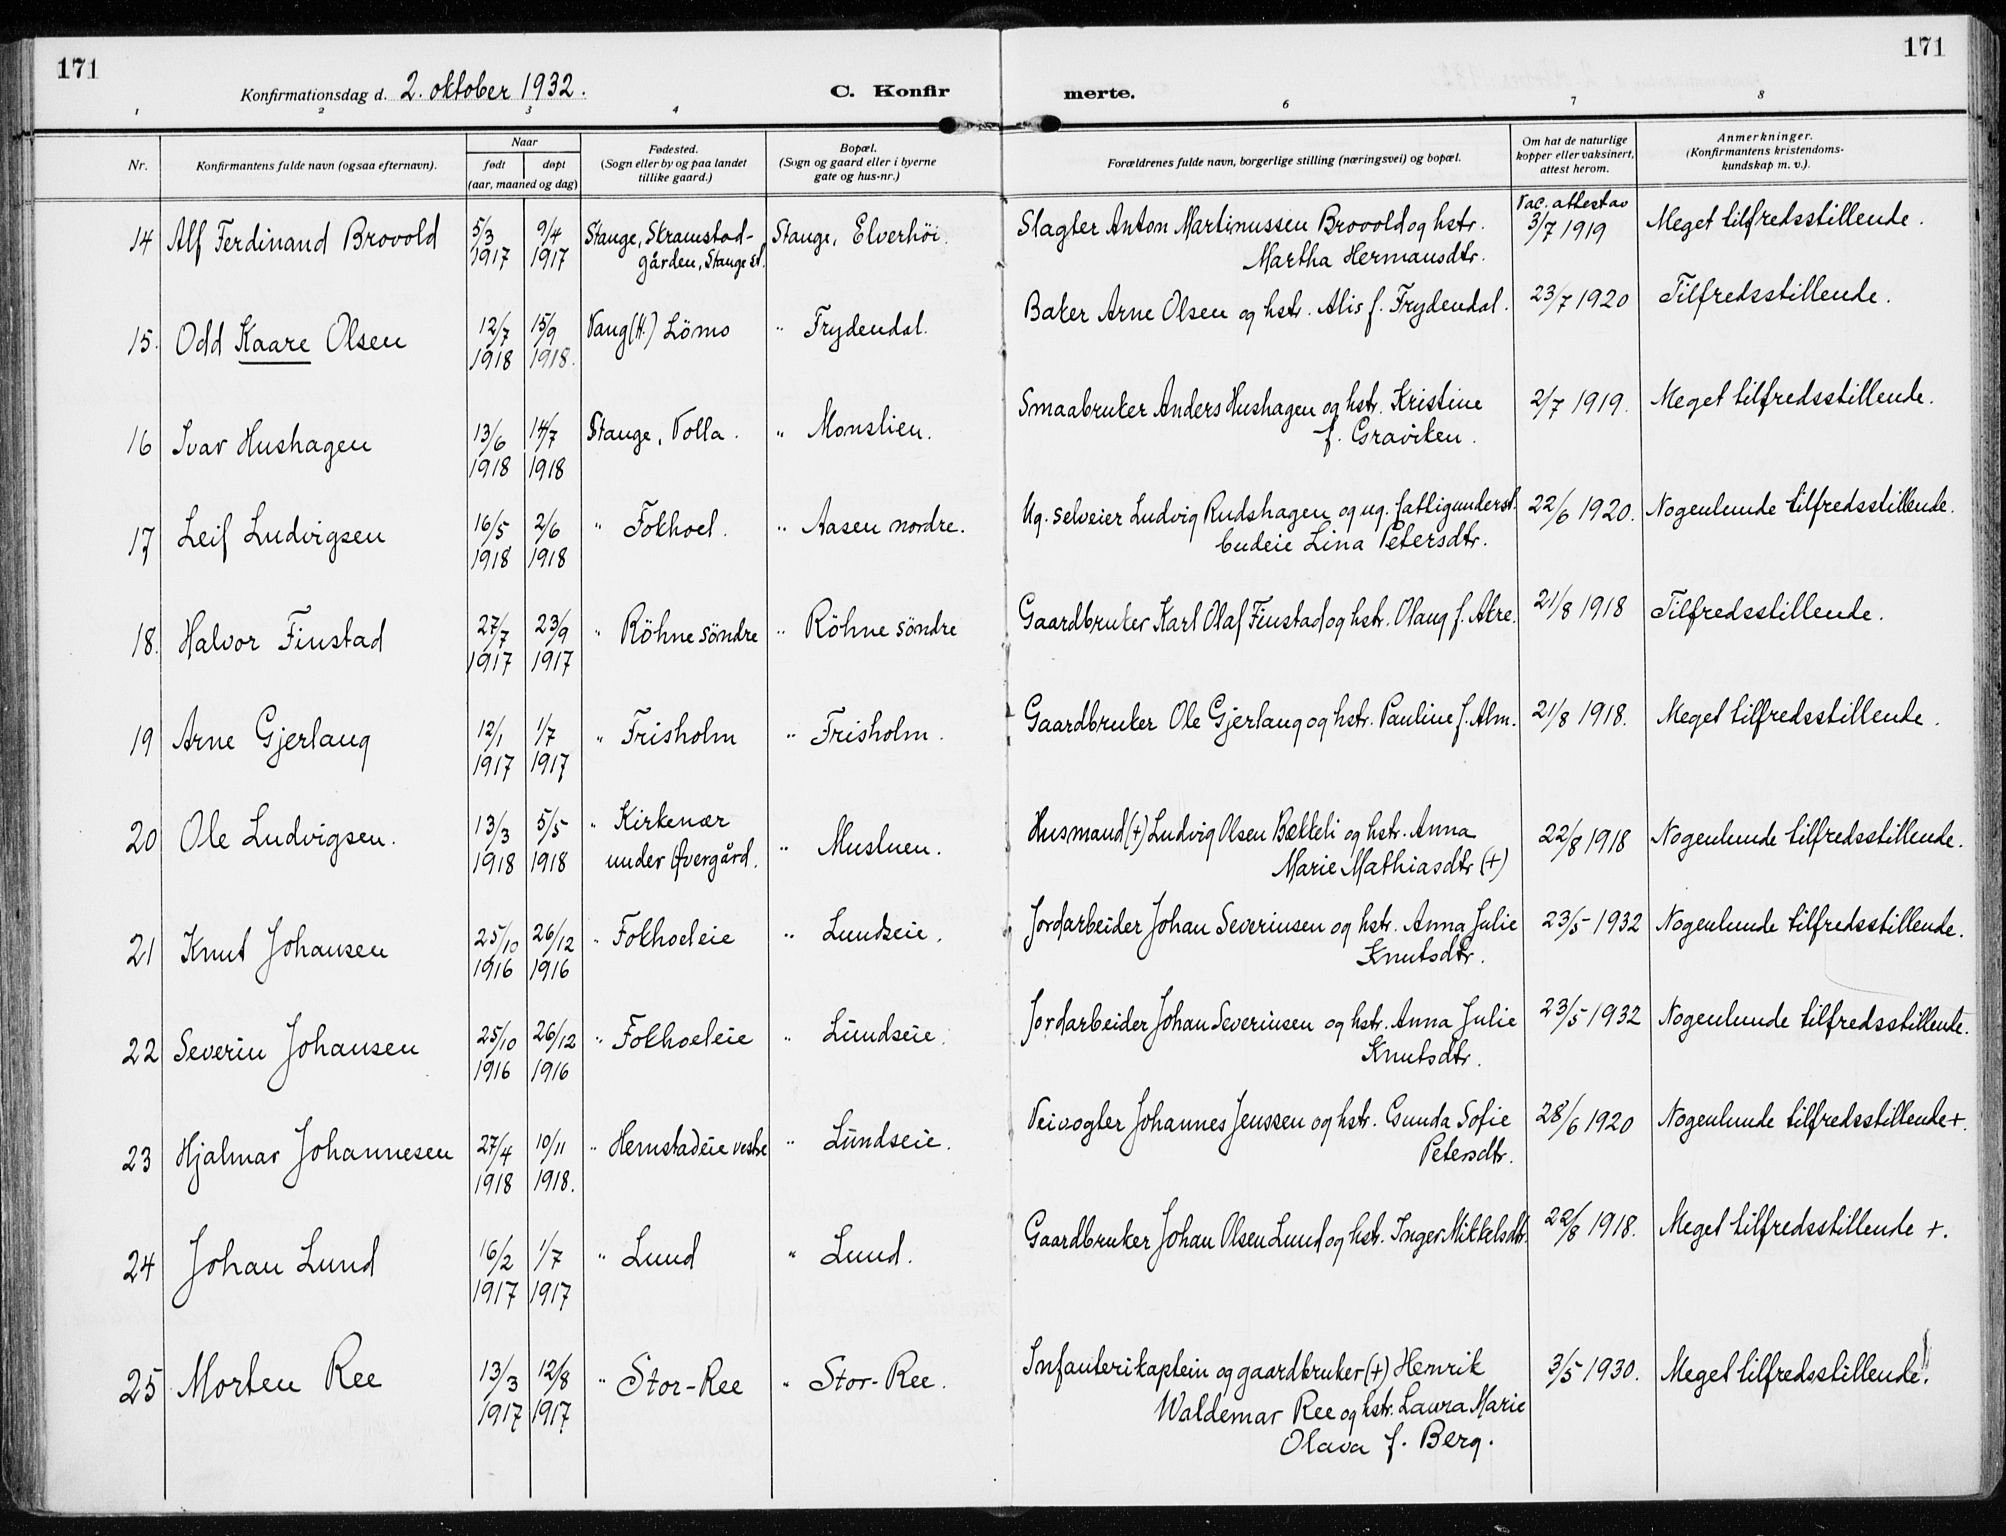 171
171
Konfirmationsdag d. 2. oktober 1932.
C. Konfirmerte.
1 2 3 4 6 7 8
Nr.
Konfirmantens fulde navn (ogsaa efternavn).
Naar
født
døpt
(aar, maaned og dag)
Fødested.
(Sogn eller by og paa landet
tillike gaard.)
Bopæl.
(Sogn og gaard eller i byerne
gate og hus-nr.)
Forældrenes fulde navn, borgerlige stilling (næringsvei) og bopæl.
Om hat de naturlige
kopper eller vaksinert,
attest herom.
Anmerkninger.
(Konfirmantens kristendoms-
kundskap m. v.).
14 Alf Ferdinand Brovold 5/3 1917 9/4 1917 Stange, Skramstad- Stange, Elverhöi. Slagter Anton Martinussen Brovold og hstr. Vac. attest av 3/7 1919 Meget tilfredsstillende.
gården, Stange st. Martha Hermansdtr.
15. Odd Kaare Olsen 12/7 1918 15/9 1918. Vang (H.) Lömo " Frydendal. Baker Arne Olsen og hstr. Alis f. Frydendal. 23/7 1920 Tilfredsstillende.
16 Ivar Hushagen 13/6 1918 14/7 1918 Stange, Volla. " Monslien. Smaabruker Anders Hushagen og hstr. Kristine 2/7 1919. Meget tilfredsstillende.
f. Graviken.
17 Leif Ludvigsen 16/5 1918 2/6 1918 " Fokhoel. " Aasen nordre. Ug. selveier Ludvig Rudshagen og ug. fattigunderst. 22/6 1920. Nogenlunde tilfredsstillende.
budeie Lina Petersdtr.
18. Halvor Finstad 27/7 1917 23/9 1917 " Röhne söndre " Röhne söndre Gaardbruker Karl Olaf Finstad og hstr. Olaug f. Akre. 21/8 1918 Tilfredsstillende.
19 Arne Gjerlaug 12/1 1917 1/7 1917 " Frisholm " Frisholm. Gaardbruker Ole Gjerlaug og hstr. Pauline f. Alm. 21/8 1918. Meget tilfredsstillende.
20 Ole Ludvigsen. 13/3 1918 5/5 1918 " Kirkenær " Musluen. Husmand (+) Ludvig Olsen Bækkeli og hstr. Anna 22/8 1918 Nogenlunde tilfredsstillende.
under Øvergård. Marie Mathiasdtr (+)
21 Knut Johansen 25/10 1916 26/12 1916 " Fokhoeleie " Lundseie. Jordarbeider Johan Severinsen og hstr. Anna Julie 23/5 1932 Nogenlunde tilfredsstillende.
Knutsdtr.
22 Severin Johansen 25/10 1916 26/12 1916 " Fokhoeleie " Lundseie. Jordarbeider Johan Severinsen og hstr. Anna Julie 23/5 1932 Nogenlunde tilfredsstillende.
Knutsdtr.
23 Hjalmar Johannesen 27/4 1918 10/11 1918. " Hemstadeie vestre " Lundseie. Veivogter Johannes Jenssen og hstr. Gunda Sofie 28/6 1920 Nogenlunde tilfredsstillende +.
Petersdtr.
24 Johan Lund 16/2 1917 1/7 1917 " Lund " Lund. Gaardbruker Johan Olsen Lund og hstr. Inger Mikkelsdtr. 22/8 1918. Meget tilfredsstillende +.
25 Morten Ree 13/3 1917 12/8 1917 " Stor-Ree " Stor-Ree. Infanterikaptein og gaardbruker (+) Henrik 3/5 1930. Meget tilfredsstillende.
Waldemar Ree og hstr. Laura Marie
Olava f. Berg.